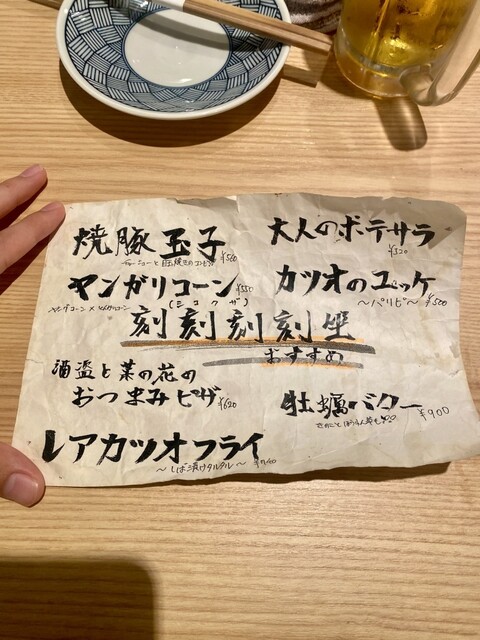 焼豚玉子
チャーシューと目玉焼きのコンビ ¥580
大人のポテサラ
¥520
ヤンガリコーン ¥550
ヤングコーン×とんがりコーン
カツオのユッケ
〜パリピ〜 ¥500
(シコクザ)
刻刻刻刻坐
おすすめ
酒盗と菜の花の
おつまみピザ ¥620
牡蠣バター ¥900
レアカツオフライ
〜しば漬けタルタル〜